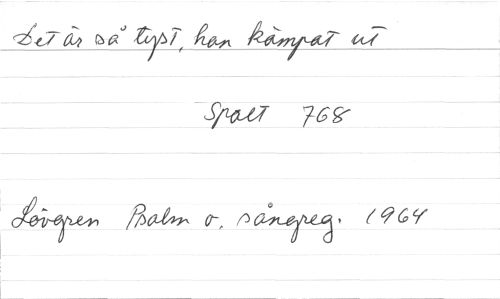 Det är så tyst, han kämpat ut
Spalt 768
Lövgren Psalm o. sångreg. 1964